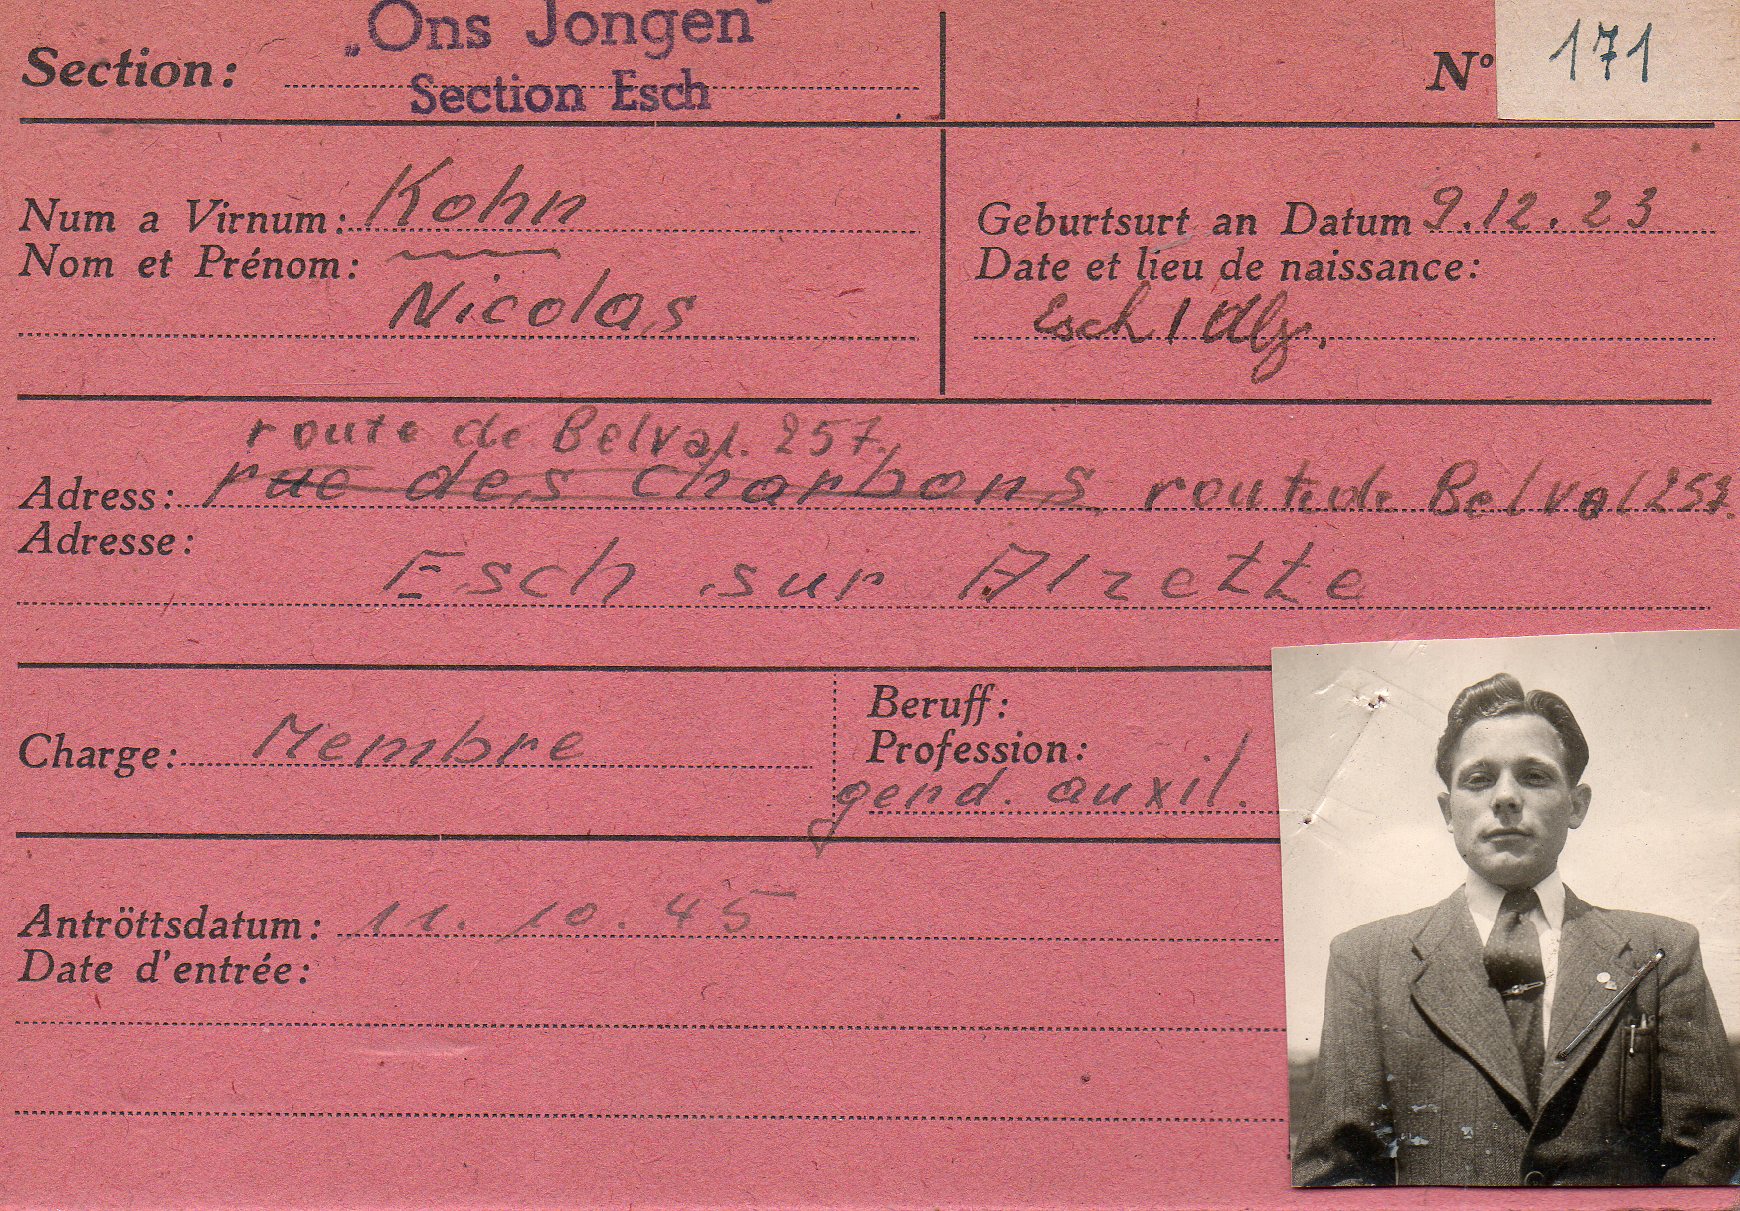 „Ons Jongen"
Section: Section Esch
Nº 171
Num a Virnum: Kohn
Nom et Prénom:
Nicolas
Geburtsurt an Datum 9.12.23
Date et lieu de naissance:
Esch / Alz.
route de Belval. 257.
Adress: rue des Charbons route de Belval 257.
Adresse:
Esch sur Alzette
Charge: Membre
Beruff:
Profession:
gend. auxil.
Antröttsdatum: 11.10.45
Date d'entrée: